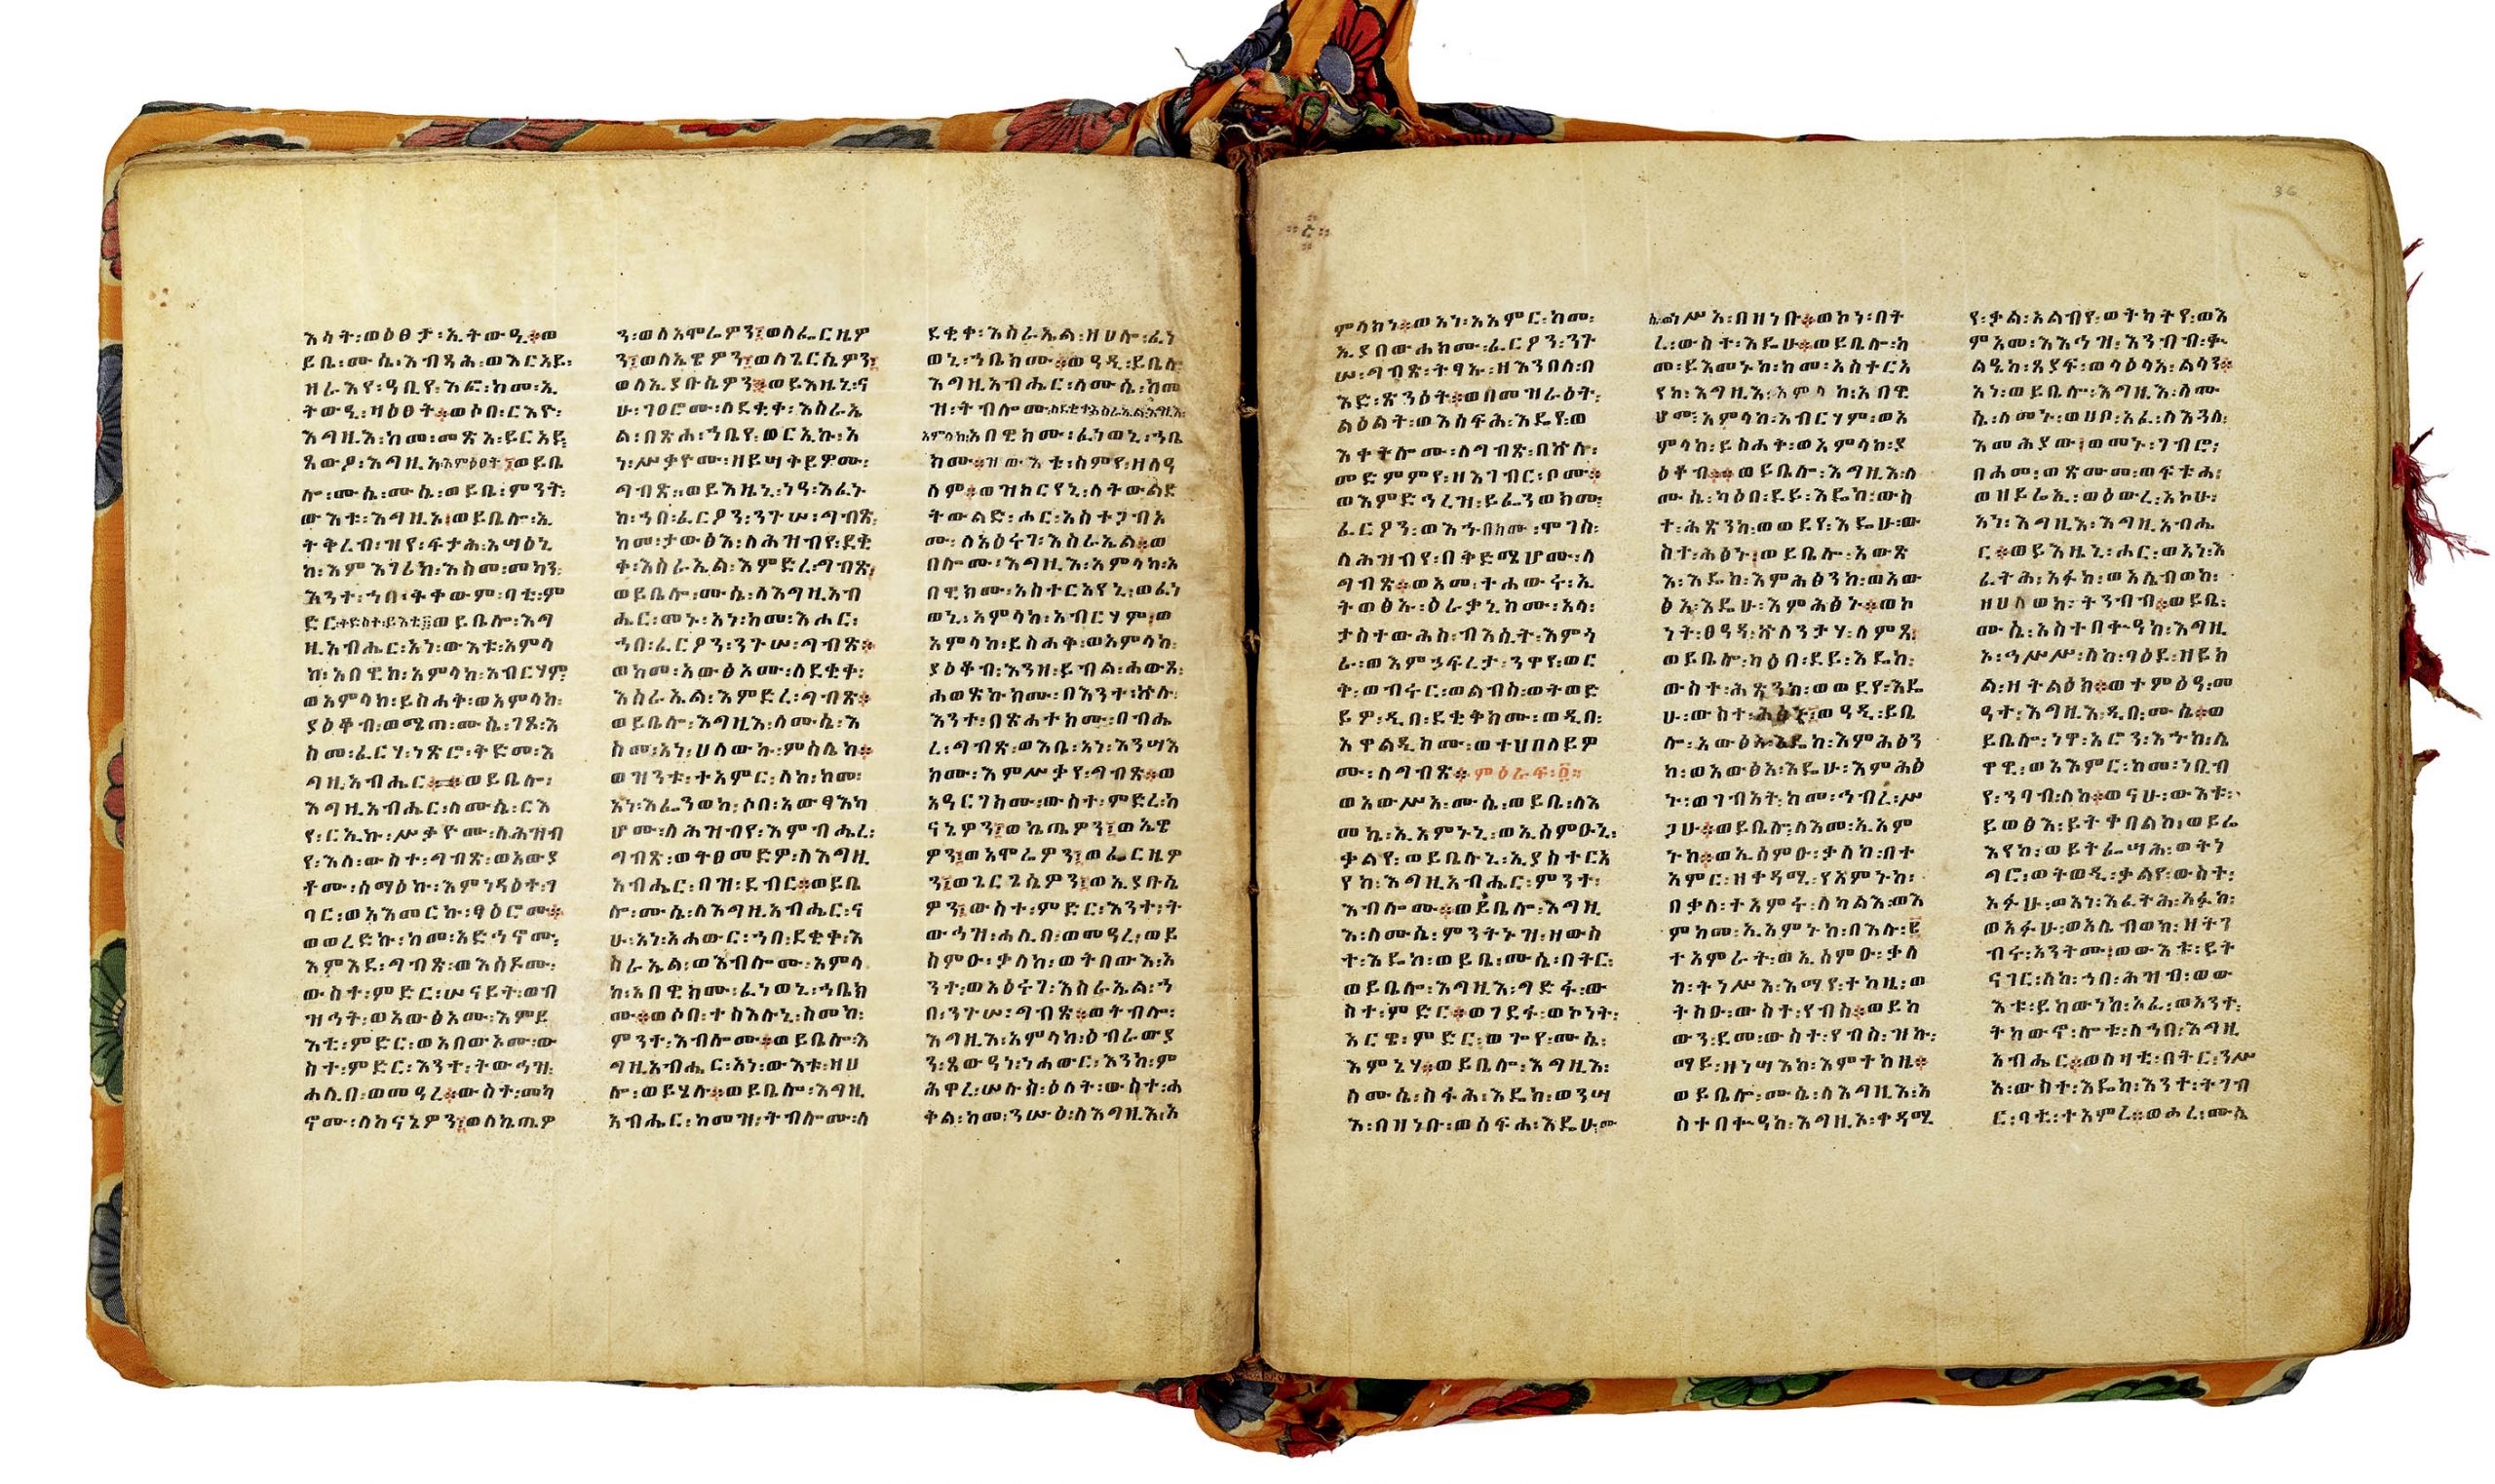 እሳት፡ወዕፀታ፡ኢትውዒ።ወ
ይቤ፡ሙሴ፡እብጻሕ፡ወእርአይ፡
ዘራእየ፡ዓቢየ፡እፎ፡ከመ፡ኢ
ትውዒ፡ዛዕፀት።ወሶበ፡ርእዮ፡
እግዚእ፡ከመ፡መጽአ፡ይርአይ፡
ጸውዖ፡እግዚእ፡እምዕፀት፤ወይቤ
ሎ፡ሙሴ፡ሙሴ፡ወይቤ፡ምንት፡
ውእቱ፡እግዚእ፡ወይቤሎ፡ኢ
ትቅረብ፡ዝየ፡ፍታሕ፡አሣዕኒ
ከ፡እምእገሪከ፡እስመ፡መካን፡
እንተ፡ኀበ፡ትቀውም፡ባቲ፡ም
ድር፡ቅድስት፡ይእቲ፤ወይቤሎ፡እግ
ዚአብሔር፡አነ፡ውእቱ፡አምላ
ከ፡አበዊከ፡አምላከ፡አብርሃም፡
ወአምላከ፡ይስሐቅ፡ወአምላከ፡
ያዕቆብ፡ወሜጠ፡ሙሴ፡ገጾ፡እ
ስመ፡ፈርሃ፡ነጽሮ፡ቅድመ፡እ
ግዚአብሔር።ወይቤሎ፡
እግዚአብሔር፡ለሙሴ፡ርእ
የ፡ርኢኩ፡ሥቃዮሙ፡ለሕዝብ
የ፡እለ፡ውስተ፡ግብጽ፡ወአውያ
ቶሙ፡ሰማዕኩ፡እምነዳዕተ፡ገ
ባር፡ወአእመርኩ፡ፃዕሮሙ።
ወወረድኩ፡ከመ፡አድኅኖሙ፡
እምእደ፡ግብጽ፡ወእሰዶሙ፡
ውስተ፡ምድር፡ሠናይት፡ወብ
ዝኅት፡ወአውፅአሙ፡እምይ
እቲ፡ምድር፡ወአበውኦሙ፡ው
ስተ፡ምድር፡እንተ፡ትውኅዝ፡
ሐሊበ፡ወመዓረ።ውስተ፡መካ
ኖሙ፡ለከናኔዎን፤ወለኬጤዎ
ን፡ወለአሞሬዎን፤ወለፌርዜዎ
ን፤ወለኤዌዎን፤ወለጌርሴዎን፤
ወለኢያቡሴዎን።ወይእዜኒ፡ና
ሁ፡ገዐሮሙ፡ለደቂቀ፡እስራኤ
ል፡በጽሐ፡ኀቤየ፡ወርኢኩ፡አ
ነ፡ሥቃዮሙ፡ዘይሣቅይዎሙ፡
ግብጽ።ወይእዜኒ፡ነዓ፡እፈኑ
ከ፡ኀበ፡ፈርዖን፡ንጉሠ፡ግብጽ፡
ከመ፡ታውፅእ፡ለሕዝብየ፡ደቂ
ቀ፡እስራኤል፡እምድረ፡ግብጽ፡
ወይቤሎ፡ሙሴ፡ለእግዚአብ
ሔር፡መኑ፡አነ፡ከመ፡እሖር፡
ኀበ፡ፈርዖን፡ንጉሠ፡ግብጽ።
ወከመ፡አውፅኦሙ፡ለደቂቀ፡
እስራኤል፡እምድረ፡ግብጽ።
ወይቤሎ፡እግዚእ፡ለሙሴ፡እ
ስመ፡አነ፡ሀለውኩ፡ምስሌከ።
ወዝንቱ፡ተአምር፡ለከ፡ከመ፡
አነ፡እፌንወከ፡ሶበ፡አውፃእካ
ሆሙ፡ለሕዝብየ፡እምብሔረ፡
ግብጽ፡ወትፀመድዎ፡ለእግዚ
አብሔር፡በዝ፡ደብር።ወይቤ
ሎ፡ሙሴ፡ለእግዚአብሔር፡ና
ሁ፡አነ፡አሐውር፡ኀበ፡ደቂቀ፡እ
ስራኤል፡ወእብሎሙ፡አምላ
ከ፡አበዊክሙ፡ፈነወኒ፡ኀቤክ
ሙ።ወሶበ፡ተስእሉኒ፡ስመከ፡
ምንተ፡እብሎሙ።ወይቤሎ፡እ
ግዚአብሔር፡አነ፡ውእቱ፡ዘሀ
ሎ፡ወይሄሉ።ወይቤሎ፡እግዚ
አብሔር፡ከመዝ፡ትብሎሙ፡ለ
ደቂቀ፡እስራኤል፡ዘሀሎ፡ፈነ
ወኒ፡ኀቤክሙ።ወዓዲ፡ይቤሎ
እግዚአብሔር፡ለሙሴ፡ከመ
ዝ፡ትብሎሙ፡ለደቂቀ፡እስራኤል፡እግዚእ፡
አምላከ፡አበዊክሙ፡ፈነወኒ፡ኀቤ
ክሙ።ዝውእቱ፡ስምየ፡ዘለዓ
ለም።ወዝክርየኒ፡ለትውልደ
ትውልድ፡ሑር፡አስተጋብእ
ሙ፡ለአዕሩገ፡እስራኤል።ወ
በሎሙ፡እግዚእ፡አምላከ፡አ
በዊክሙ፡አስተርአየኒ፡ወፈነ
ወኒ፡አምላከ፡አብርሃም፡ወ
አምላከ፡ይስሐቅ፡ወአምላከ፡
ያዕቆብ፡እንዘ፡ይብል፡ሐውጾ፡
ሐወጽኩክሙ፡በእንተ፡ኵሉ፡
እንተ፡በጽሐተክሙ፡በብሔ
ረ፡ግብጽ፡ወእቤ፡አነ፡እንሣእ
ክሙ፡እምሥቃየ፡ግብጽ።ወ
አዓርገክሙ፡ውስተ፡ምድረ፡ከ
ናኔዎን፤ወኬጤዎን፤ወኤዌ
ዎን፤ወአሞሬዎን፤ወፌርዜዎ
ን፤ወጌርጌሴዎን፤ወኢያቡሴ
ዎን፤ውስተ፡ምድር፡እንተ፡ት
ውኅዝ፡ሐሊበ፡ወመዓረ፡ወይ
ስምዑ፡ቃለከ፡ወትበውእ፡አ
ንተ፡ወአዕሩገ፡እስራኤል፡ኀ
በ፡ንጉሠ፡ግብጽ፡ወትብሎ፡
እግዚእ፡አምላከ፡ዕብራውያ
ን፡ጸውዓነ፡ነሐውር፡እንከ፡ም
ሕዋረ፡ሠሉስ፡ዕለት፡ውስተ፡ሐ
ቅል፡ከመ፡ንሡዕ፡ለእግዚእ፡አ
፭
36
ምላክነ።ወአነ፡አአምር፡ከመ፡
ኢያበውሐክሙ፡ፈርዖን፡ንጉ
ሠ፡ግብጽ፡ትፃኡ፡ዘእንበለ፡በ
እድ፡ጽንዕት።ወበመዝራዕት፡
ልዕልት፡ወእሰፍሕ፡እዴየ፡ወ
እቀትሎሙ፡ለግብጽ፡በኵሉ፡
መድምምየ፡ዘእገብር፡ቦሙ።
ወእምድኅረዝ፡ይፌንወክሙ፡
ፈርዖን፡ወእኁበክሙ፡ሞገሰ፡
ለሕዝብየ፡በቅድሜሆሙ፡ለ
ግብጽ።ወአመ፡ተሐውሩ፡ኢ
ትወፅኡ፡ዕራቃኒክሙ፡አላ፡
ታስተውሕስ፡ብእሲት፡እምጎ
ራ፡ወእምኃፍረታ፡ንዋየ፡ወር
ቅ፡ወብሩር፡ወልብስ፡ወትወድ
ይዎ፡ዲበ፡ደቂቅክሙ፡ወዲበ፡
አዋልዲክሙ፡ወተህበለይዎ
ሙ፡ለግብጽ።ምዕራፍ፡፬።
ወአውሥአ፡ሙሴ፡ወይቤ፡ለእ
መኬ፡ኢአምኑኒ፡ወኢሰምዑኒ፡
ቃልየ፡ወይቤሉኒ፡ኢያስተርአ
የከ፡እግዚአብሔር፡ምንተ፡
እብሎሙ።ወይቤሎ፡እግዚ
እ፡ለሙሴ፡ምንትኑ፡ዝ፡ዘውስ
ተ፡እዴከ፡ወይቤ፡ሙሴ፡በትር፡
ወይቤሎ፡እግዚእ፡ግድፋ፡ው
ስተ፡ምድር።ወገደፋ፡ወኮነት፡
አርዌ፡ምድር፡ወጐየ፡ሙሴ፡
እምኔሃ።ወይቤሎ፡እግዚእ፡
ለሙሴ፡ስፋሕ፡እዴከ፡ወንሣ
እ፡በዝነቡ፡ወሰፍሐ፡እዴሁ፡ሙ
ሴ፡ወነሥአ፡በዘነቡ።ወኮነ፡በት
ረ፡ውስተ፡እዴሁ።ወይቤሎ፡ከ
መ፡ይእመኑከ፡ከመ፡አስተርአ
የከ፡እግዚእ፡አምላከ፡አበዊ
ሆሙ፡አምላከ፡አብርሃም፡ወአ
ምላከ፡ይስሐቅ፡ወአምላከ፡ያ
ዕቆብ።ወይቤሎ፡እግዚእ፡ለ
ሙሴ፡ካዕበ፡ደይ፡እዴከ፡ውስ
ተ፡ሕጽንከ፡ወወደየ፡እዴሁ፡ው
ስተ፡ሕፅኑ፡ወይቤሎ፡አውጽ
እ፡እዴከ፡እምሕፅንከ፡ወአው
ፅአ፡እዴሁ፡እምሕፅኑ።ወኮ
ነት፡ፀዓዳ፡ጽለንታሃ፡ለምጽ፡
ወይቤሎ፡ካዕበ፡ደይ፡እዴከ፡
ውስተ፡ሕጽንከ፡ወወደየ፡እዴ
ሁ፡ውስተ፡ሕፅኑ፤ወዓዲ፡ይቤ
ሎ፡አውፅእ፡እዴከ፡እምሕፅን
ከ፡ወአውፅአ፡እዴሁ፡እምሕፅ
ኑ፡ወገብአት፡ከመ፡ኅብረ፡ሥ
ጋሁ።ወይቤሎ፡ለእመ፡ኢአም
ኑከ።ወኢሰምዑ፡ቃለከ፡በተ
አምር፡ዘቀዳሚ፡የአምኑከ፡
በቃለ፡ተአምሩ፡ለካልእ፡ወእ
ምከመ፡ኢአምኑከ፡በእሉ፡፪
ተአምራት፡ወኢሰምዑ፡ቃለ
ከ፡ትነሥእ፡እማየ፡ተከዚ፡ወ
ትክዑ፡ውስተ፡የብስ።ወይከ
ውን፡ደመ፡ውስተ፡የብስ፡ዝኩ፡
ማይ፡ዘነሣእከ፡እምተከዚ።
ወይቤሎ፡ሙሴ፡ለእግዚእ፡አ
ስተበቍዓከ፡እግዚኦ፡ቀዳሚ
የ፡ቃል፡አልብየ፡ወትካትየ፡ወእ
ምአመ፡እእኅዝ፡እንብብ፡ቍ
ልዔከ፡ጸያፍ፡ወላዕላእ፡ልሳን።
አነ፡ወይቤሎ፡እግዚእ፡ለሙ
ሴ፡ለመኑ፡ወሀቦ፡አፈ፡ለእጓለ፡
እመሕያው፡ወመኑ፡ገብሮ፡
በሐመ፡ወጽሙመ፡ወፍቱሐ፡
ወዝይሬኢ፡ወዕውረ፡አኮሁ፡
አነ፡እግዚእ፡እግዚአብሔ
ር።ወይእዜኒ፡ሑር፡ወአነ፡እ
ፈትሕ፡አፉከ፡ወአሌብወከ፡
ዘሀለወከ፡ትንብብ።ወይቤ፡
ሙሴ፡አስተበቍዓከ፡እግዚ
ኦ፡ኅሥሥ፡ለከ፡ባዕደ፡ዝይክ
ል፡ዘትልዕክ።ወተምዕዓ፡መ
ዓተ፡እግዚእ፡ዲበ፡ሙሴ።ወ
ይቤሎ፡ነዋ፡አሮን፡እኁከ፡ሌ
ዋዊ፡ወአአምር፡ከመ፡ነቢብ
የ፡ንባብ፡ለከ።ወናሁ፡ውእቱ፡
ይወፅእ፡ይትቀበልከ፡ወይሬ
እየከ፡ወይትፌሣሕ፡ወትነ
ግሮ፡ወትወዲ፡ቃልየ፡ውስተ፡
አፉሁ፡ወአነ፡እፈትሕ፡አፉከ፡
ወአፉሁ፡ወአሌብወከ፡ዘትገ
ብሩ፡አንትሙ፡ወውእቱ፡ይት
ናገር፡ለከ፡ኀበ፡ሕዝብ፡ወው
እቱ፡ይከውነከ፡አፈ፡ወአንተ፡
ትከውኖ፡ሎቱ፡ለኀበ፡እግዚ
አብሔር።ወለዛቲ፡በትር፡ንሥ
እ፡ውስተ፡እዴከ፡እንተ፡ትገብ
ር፡ባቲ፡ተአምረ።ወሖረ፡ሙሴ